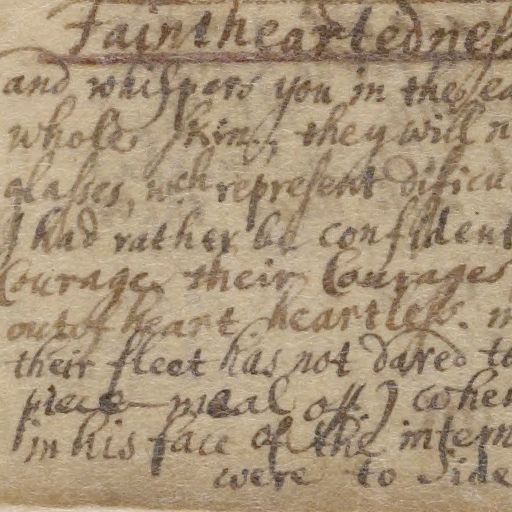 Faintheartedness
and whispers you in the ea
whole skin, they will n
glasses, wch represent dificul
I had rather be confident
Courage. their Courages
out of heart heartless. m
their fleet has not dared to
piece meal off) when
in his face of the infern
were to side